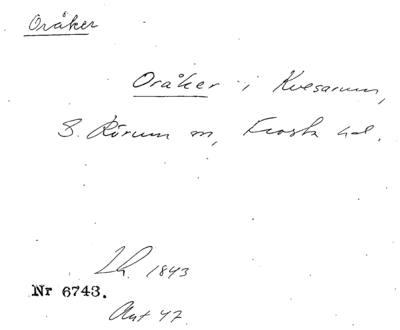 Oråker
Oråker i Kvesarum,
S. Rörum sn, Frosta hd.
Lh. 1843
Nr 6743.
Akt 47